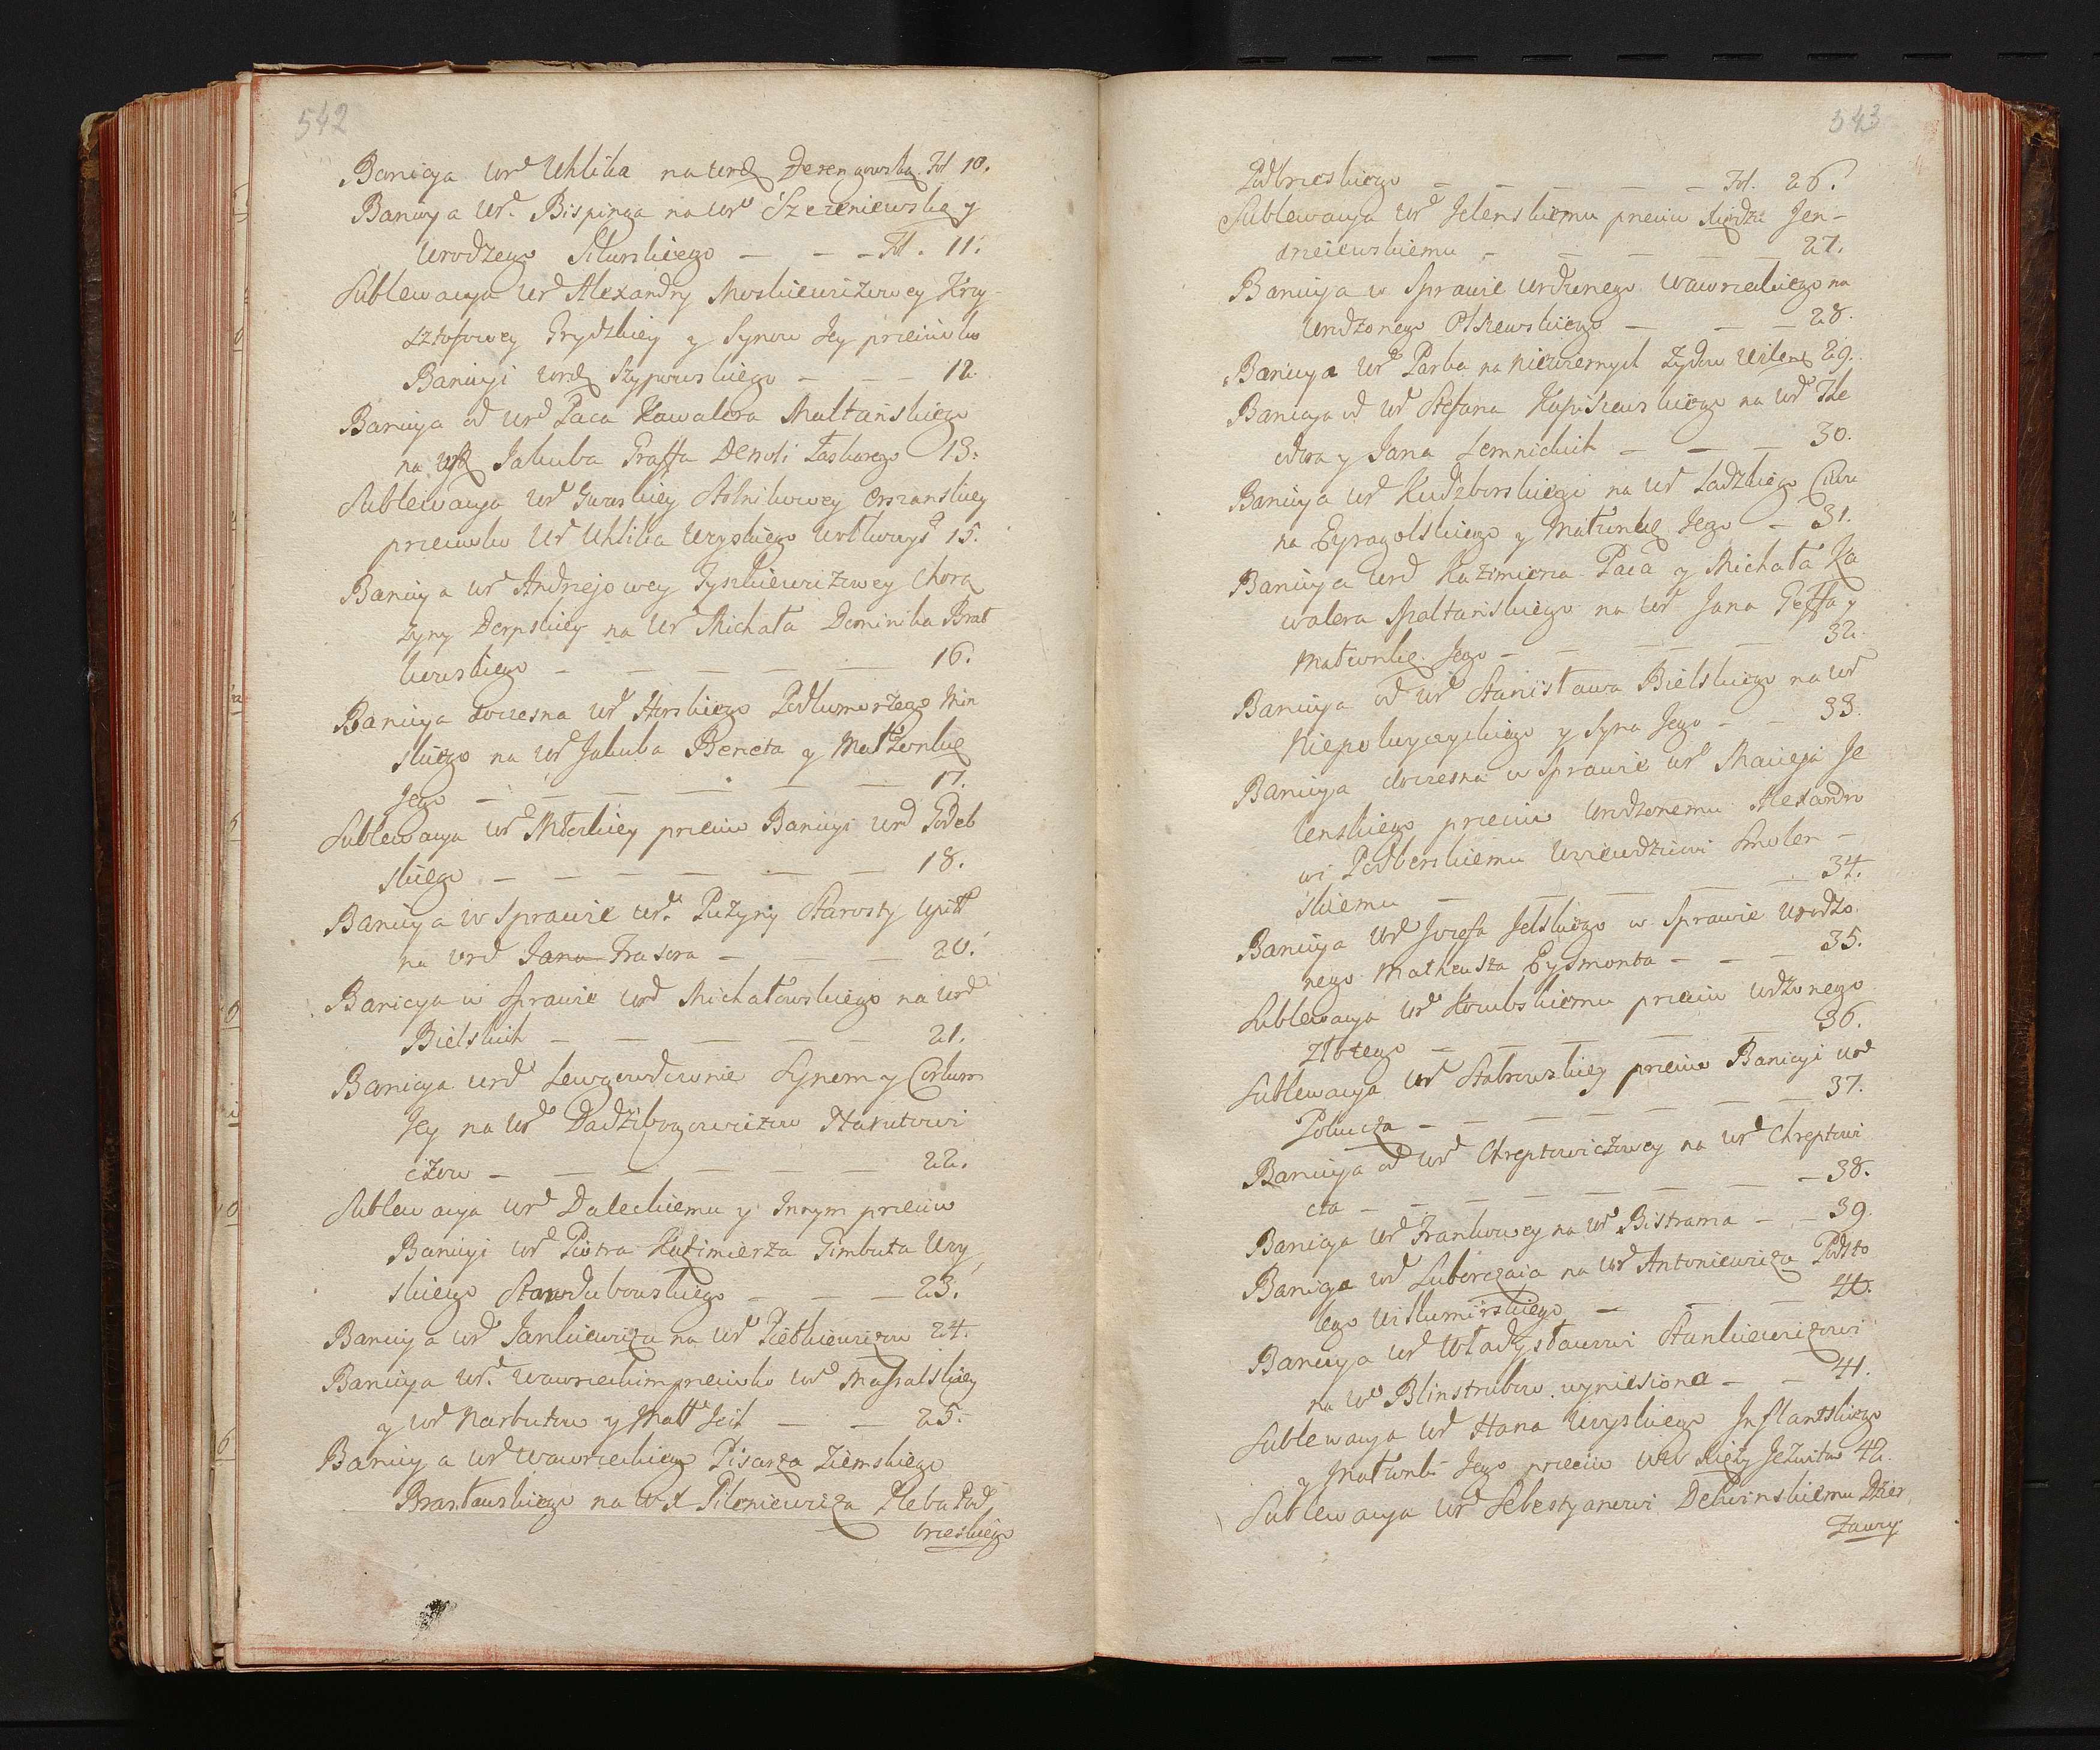 542
Banicya Urd Uhlika na Urd Derengowska. Fol 10.
Banicya Urd. Bispinga na Urd Szczeniewską y
Urodzego Sikorskiego — — — Fol. 11.
Sublewacya Urd Alexandry Moskiewiczowey Krzy-
sztofowey Grydzkiey y Synow Jey przeciwko
Banicyi Urd Szypowskiego — — — 12.
Banicya od Urd Paca Kawalera Maltańskiego
na Jakuba Graffa Denofi 13.
Sublewacya Urd Stolnikowey Orszanskiey
przeciwko Ur Uhlika 15.
Banicya Urd Andrzejowey Tyszkiewiczowey Chorą
żyny Derpskiey na Ur Michała Dominika Brat
kowskiego — — — — — 16.
Banicya doczesna Urd Horskiego Podkomorzego Min
skiego na Urd Jakuba Beneta y Małżonkę
Jego — — — — — — 17.
Sublewacya Urd przeciw Banicyi Urd
skiego — — — — — — 18.
Banicya w Sprawie Urd. Puzyny Starosty Upitt
na Urd Jana Frasera — — — 20.
Banicya w Sprawie Urd Michałowskiego na Urd
Bielskich — — — — — 21.
Banicya Urd Synom y Corkom
Jey na Urd Dadzibogowiczow Narutowi
czow — — — — — — 22.
Sublewacya Urd Daleckiemu y Innym przeciw
Banicyi Urd Piotra Kazimierza Gimbuta Woy
skiego Starodubowskiego — — — 23.
Banicya Urd Jankiewicza na Urd Pietkiewiczow 24.
Banicya Urd. Wawrzeckim przeciwko Urd Massalskiey
y Urd Narbutow y Małż Ich — — 25.
Banicya Urd Wawrzeckiego Pisarza Ziemskiego
Brasławskiego na Pileniewicza Pleba Pod
brzeskiego
543
Podbrzeskiego — — — — — Fol. 26.
Sublewacya Urd Jelenskiemu przeciw Xiędzu Jen-
drzeiewskiemu — — — — — 27.
Banicya w Sprawie Urdzonego Wawrzeckiego na
Urodzonego Olszewskiego — — — 28.
Banicya Urd Parba na niewiernych Żydow Wilens 29.
Banicya od Urd Stefana Kopiszewskiego na Urd The
odora y Jana Lemnickich — — — 30.
Banicya Urd Kudzborskiego na Ur Ladzkiego Ciwu
na Eyragolskiego y Małżonkę Jego — 31.
Banicya Urd Kazimierza Paca y Michała Ka
walera Maltańskiego na Urd Jana y
Małżonkę Jego — — — — — 32.
Banicya od Urd Stanisława Bielskiego na Urd
Niepokoyczyckiego y Syna Jego — — 33.
Banicya doczesna w Sprawie Urd Macieja Je
lenskiego przeciw Urodzonemu Alexandro
wi Podberskiemu Woiewdzicowi Smolen —
skiemu — — — — — 34.
Banicya Urd Jozefa Jelskiego w Sprawie Urodzo
nego Matheusza Eysmonta — — — 35.
Sublewacya Urd przeciw Urdzonego
Złotego — — — — — 36.
Sublewacya Urd Stabrowskiey przeciw Banicyi Urd
— — — — — — 37.
Banicya od Urd Chreptowiczowey na Urd Chreptowi
cza — — — — — — — 38.
Banicya Urd Frankowey na Urd Bistrama — — 39.
Banicya Urd na Urd Antoniewicza Podsto
lego Wilkomirskiego — — — 40.
Banicya Urd Władysławowi Stankiewiczowi
na Urd Blinstrubow wyniesiona — — 41.
Sublewacya Urd Hana Woyskiego Inflantskiego
y Małżonki Jego przeciw WW Xięży Jezuitow 42.
Sublewacya Urd Sebestyanowi Dekwinskiemu Dzier
żawcy